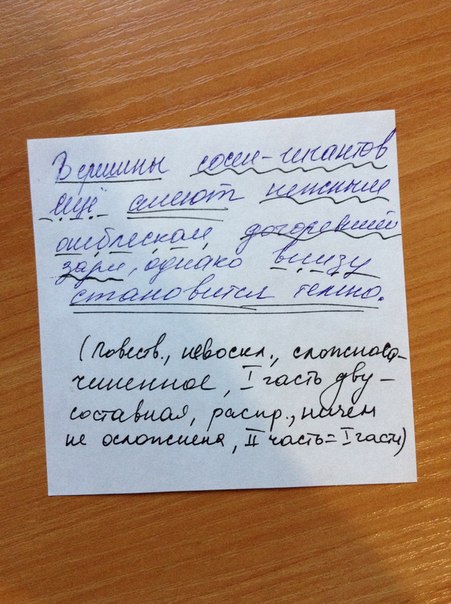 Вершины сосен-гигантов
ещё сияют нежным
отблеском догоревшей
зари, однако внизу
становится темно.
(повеств., невоскл., сложносо-
чиненное, I часть дву-
составная, распр., ничем
не осложнена, II часть = I части)